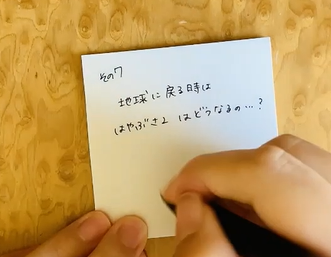 その7
地球に戻る時は
はやぶさ2 はどうなるの…?